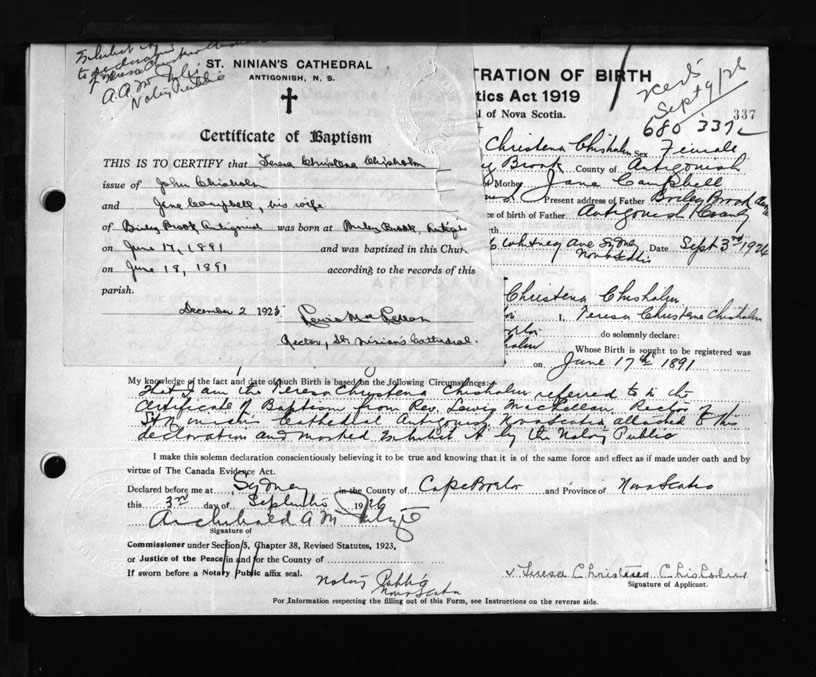 Exhibit A
to declaration
of Teresa Christena
A. A. Mc
Notary Public
ST. NINIAN'S CATHEDRAL
ANTIGONISH, N. S.
Certificate of Baptism
THIS IS TO CERTIFY that Teresa Christena Chisholm
issue of John Chisholm
and Jane Campbell, his wife
of Briley Brook Antigonish was born at Briley Brook, Antig
on June 17, 1891 and was baptized in this Chur
on June 18, 1891 according to the records of this
parish.
December 2 1923
Lewis MacLellan
Rector, St. Ninian's Cathedral.
TRATION OF BIRTH
tics Act 1919
l of Nova Scotia.
Rec'd
Sept 9/26
337
680 337
Christena Chisholm Sex Female
y Brook County of Antigonish
Mother Jane Campbell
Present address of Father Briley Brook
ce of birth of Father Antigonish County
th
Whitney Ave Sydney Date Sept 3rd 1926
Nova Scotia
Christena Chisholm
I, Teresa Christena Chisholm
do solemnly declare:
holm Whose Birth is sought to be registered was
on June 17th 1891
My knowledge of the fact and date of such Birth is based on the following Circumstances:
that I am the Teresa Christena Chisholm referred to in the
Certificate of Baptism from Rev. Lewis MacLellan, Rector of
St Ninian's Cathedral Antigonish Nova Scotia attached to this
declaration and marked Exhibit A by the Notary Public
I make this solemn declaration conscientiously believing it to be true and knowing that it is of the same force and effect as if made under oath and by
virtue of The Canada Evidence Act.
Declared before me at Sydney in the County of Cape Breton and Province of Nova Scotia
this 3rd day of September 1926
Archibald A. M
Signature of
Commissioner under Section 5, Chapter 38, Revised Statutes, 1923,
or Justice of the Peace in and for the County of
If sworn before a Notary Public affix seal.
Notary Public
Nova Scotia
x Teresa Christena Chisholm
Signature of Applicant.
For Information respecting the filling out of this Form, see Instructions on the reverse side.